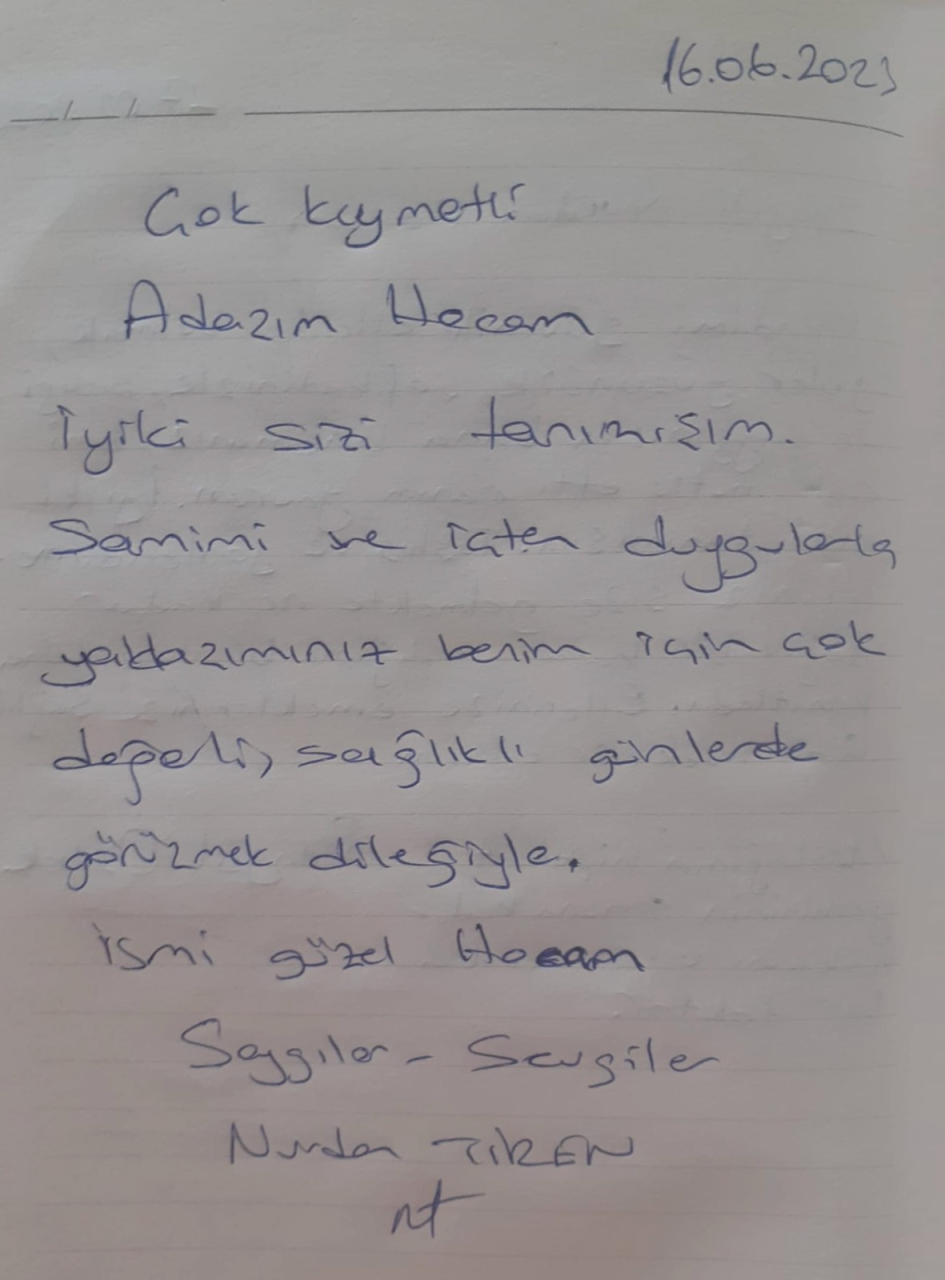 16.06.2023
Çok kıymetli
Adaşım Hocam
İyiki sizi tanımışım.
Samimi ve içten duygularla
yaklaşımınız benim için çok
değerli, sağlıklı günlerde
görüşmek dileğiyle.
ismi güzel Hocam
Saygılar - Sevgiler
Nurdan TİREN
nt